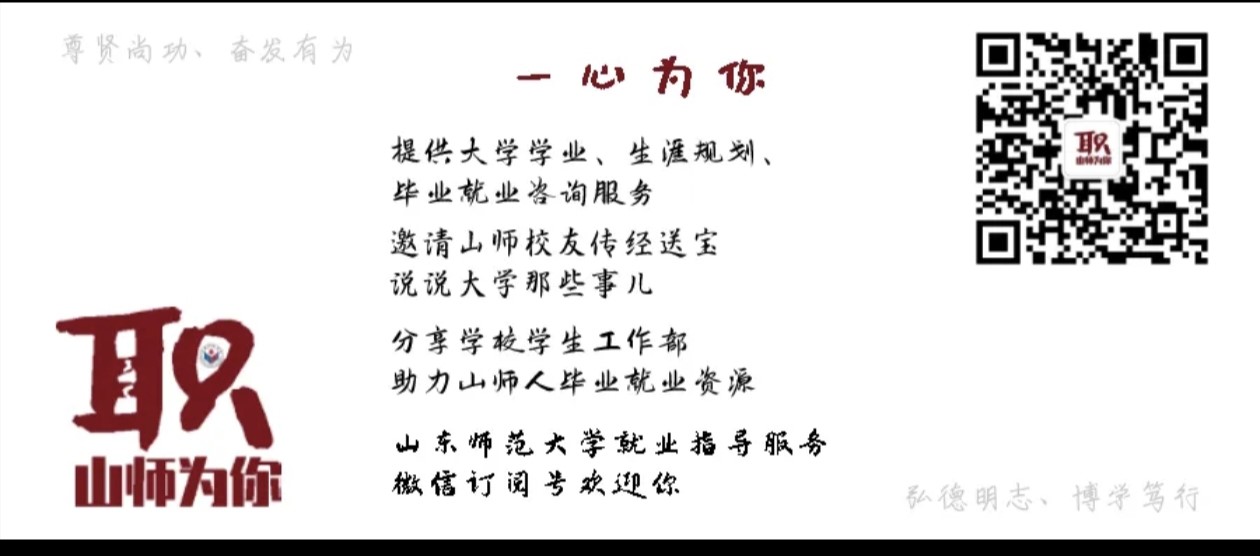 尊贤尚功、奋发有为
一心为你
提供大学学业、生涯规划、
毕业就业咨询服务
邀请山师校友传经送宝
说说大学那些事儿
分享学校学生工作部
助力山师人毕业就业资源
山东师范大学就业指导服务
微信订阅号欢迎你
职
山师为你
职
山师为你
弘德明志、博学笃行